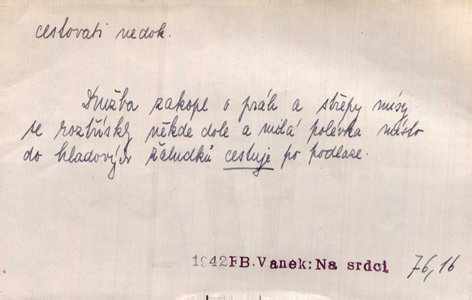 cestovati nedok.
Družba zakopl o práh a střepy mísy
se roztřískly někde dole a milá polévka místo
do hladových žaludků cestuje po podlaze.
1942 F.B.Vanek: Na srdci 76,16